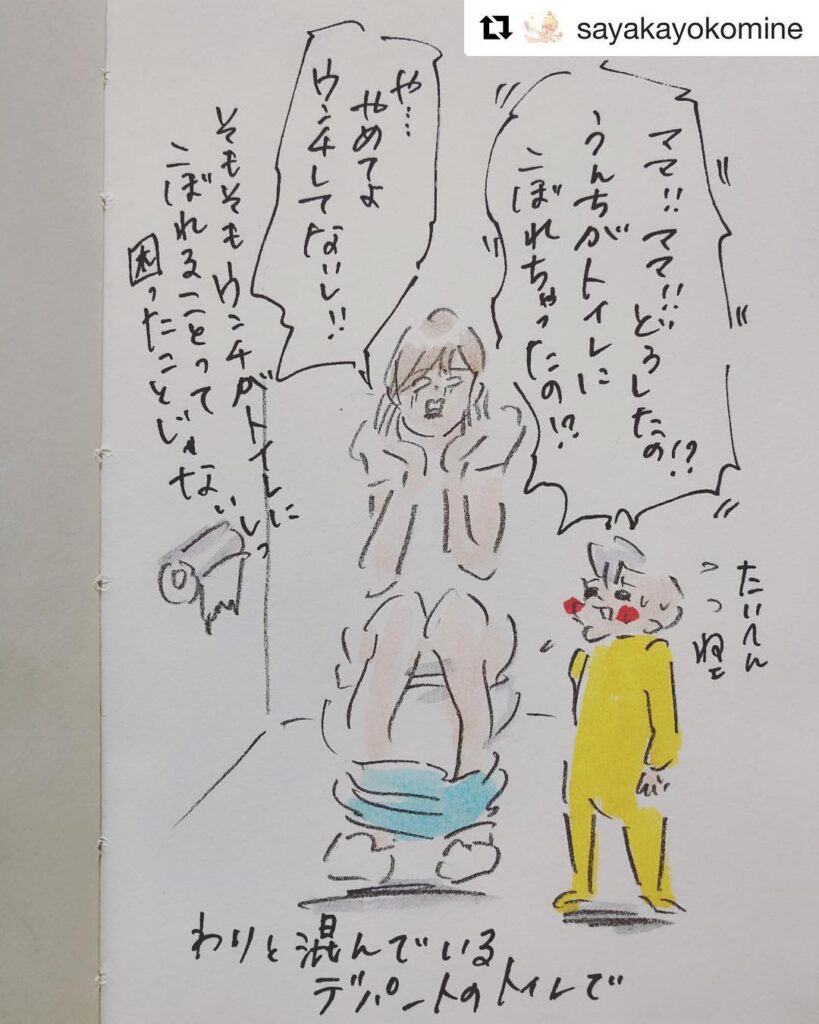 sayakayokomine
ママ!!ママ!!どうしたの!?
うんちがトイレに
こぼれちゃったの!?
や…
やめてよ
ウンチしてないし!!
そもそもウンチがトイレに
こぼれることって
困ったことじゃないしっ
たいへん
わりと混んでいる
デパートのトイレで